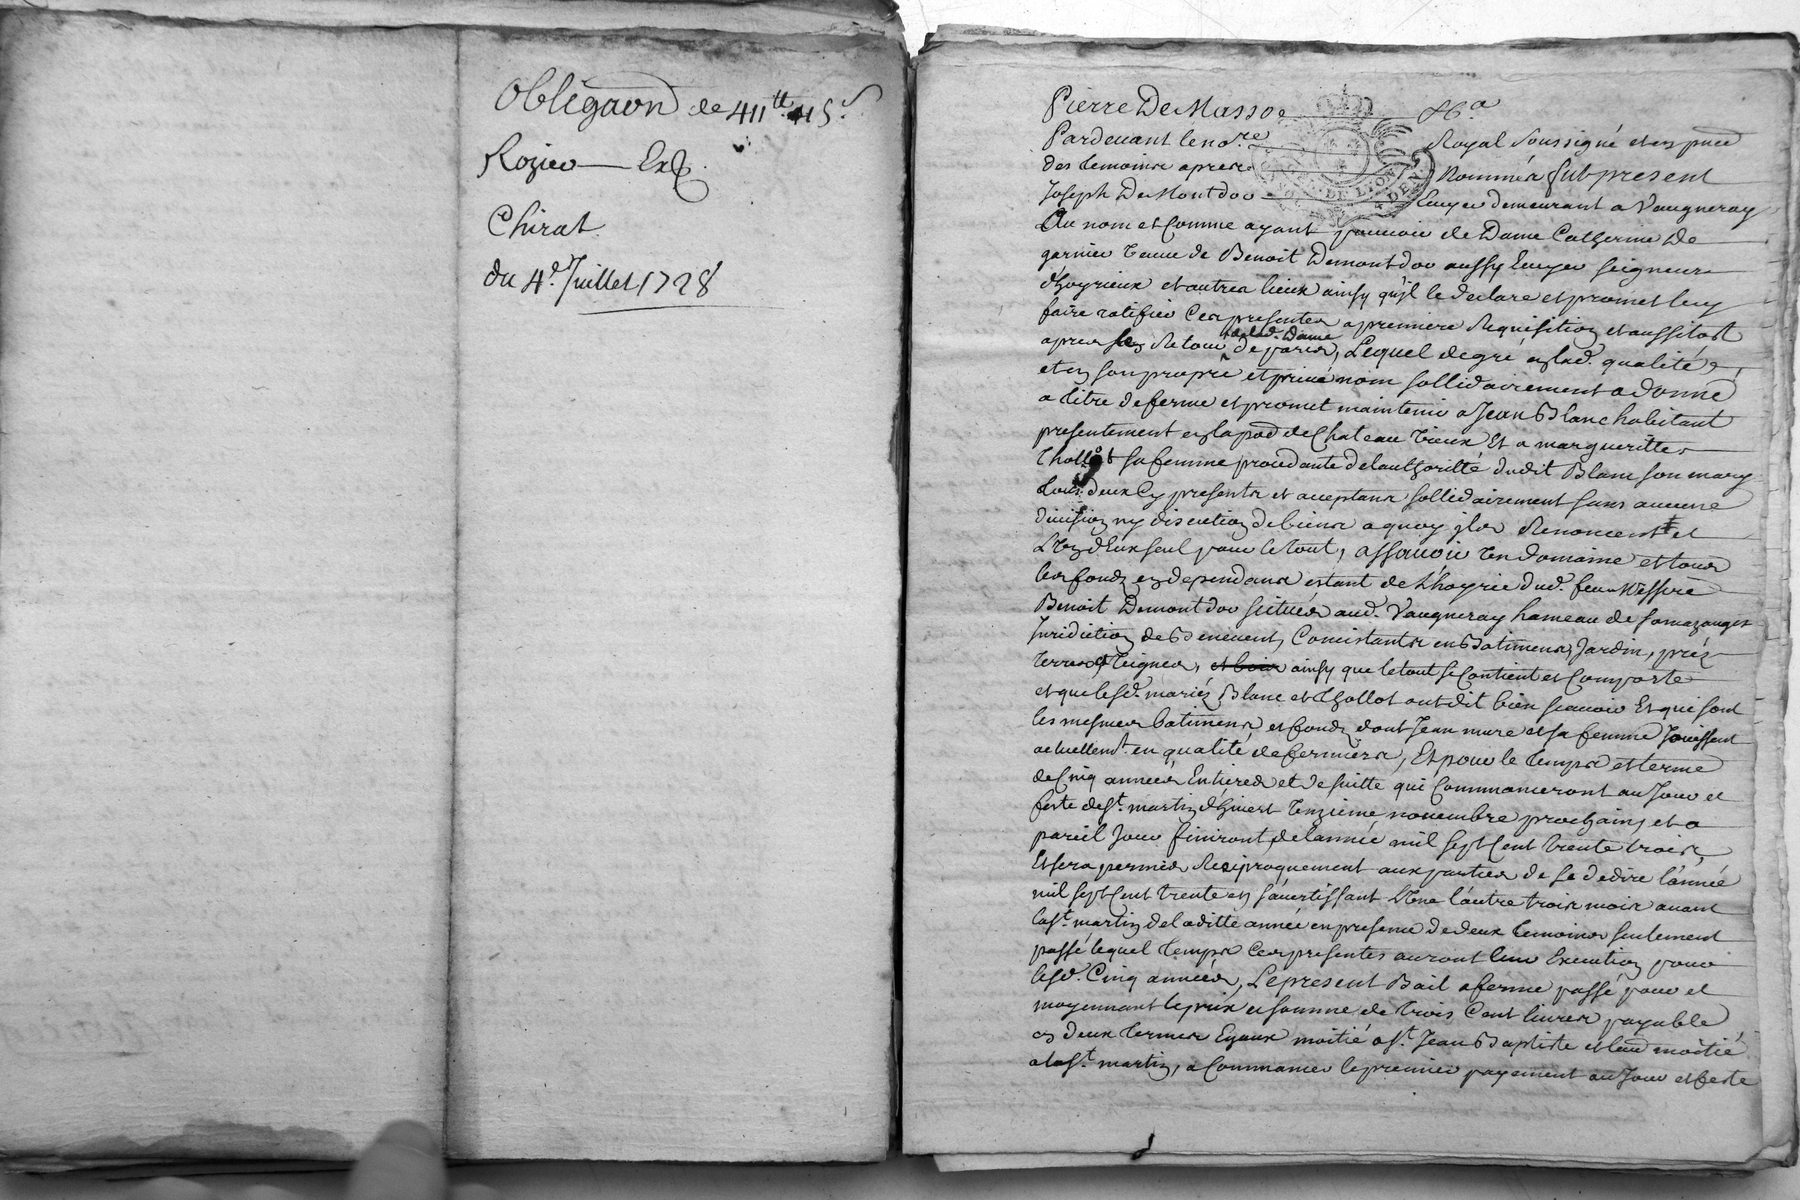 Obligaon de 411tt 15s
Rozier — Exp
Chirat
du 4e Juillet 1728
Pierre De Masso &a
Pardevant le nore Royal soussigné et en pnce
des temoins apres Nommés fut present
Joseph De Montdor Ecuyer demeurant a Vaugneray
Au nom et Comme ayant pouvoir de Dame Catherine De
garnier veuve de Benoit Demontdor aussy Ecuyer seigneur
d'hoyrieux et autres lieux ainsy qu'il le declare et promet luy
faire ratifier Ces presentes a premiere Requisition et aussitost
apres le Retour de lad. Dame de paris, Lequel de gré esd. qualités
et en son propre et privé nom sollidairement a donné
a titre de ferme et promet maintenir a Jean Blanc habitant
presentement en la psse de Chateau vieux Et a margueritte
Thollot sa femme procedante de l'authoritté dudit Blanc son mary
tous deux Cy presents et acceptans sollidairement sans aucune
division ny discution de biens a quoy ils Renoncent et
L'Un d'Eux seul pour le tout, assavoir Un domaine et tous
les fondz en dependans estant de l'hoyrie dud. feu Messire
Benoit Demontdor scitués aud. Vaugneray hameau de
Juridiction de Benevent, Concistants en Batimens, Jardin, prés
terres & vignes, et bois ainsy que le tout se Contient et Comporte
et que lesd. mariés Blanc et Thollot ont dit bien scavoir Et que sont
les mesmes batimens et fondz dont Jean mure et sa femme Jouissent
actuellemt. en qualité de fermiers, Et pour le temps et terme
de Cinq années Entieres et de suitte qui Commanceront au Jour et
feste de st. martin d'hivert Unzieme novembre prochain, et a
pareil Jour finiront de l'année mil sept Cent trente trois,
Et sera permis Reciproquement aux parties de se dedire l'année
mil sept Cent trente en s'avertissant L'Une l'autre trois mois avant
la st. martin de laditte année en presence de deux temoins seulement
passé lequel temps Ces presentes auront leur Execution pour
lesd. Cinq années, Le present Bail a ferme passé pour et
moyennant le prix et somme de trois Cent livres payable
en deux termes Egaux moitié a st. Jean Baptiste et l'au. moitié
a la st. martin, a Commancer le premier payement au Jour et feste